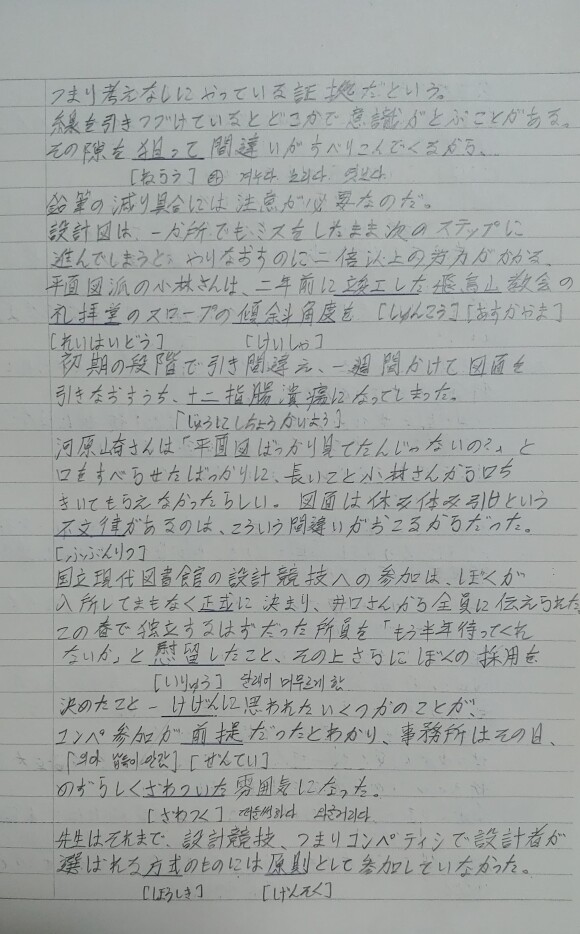 つまり考えなしにやっている証拠だという。
線を引きつづけているとどこかで意識がとぶことがある。
その隙を狙って間違いがすべりこんでくるから、
[ねらう] 겨누다 노리다
鉛筆の減り具合には注意が必要なのだ。
設計図は、一か所でもミスをしたまま次のステップに
進んでしまうと やりなおすのに二倍以上の労力がかかる。
平面図派の小林さんは、二年前に竣工した飛鳥山教会の
礼拝堂のスロープの傾斜角度を [しゅんこう] [あすかやま]
[れいはいどう] [けいしゃ]
初期の段階で引き間違え、一週間かけて図面を
引きなおすうち、十二指腸潰瘍になってしまった。
「じゅうにしちょうかいよう]
河原崎さんは「平面図ばっかり見てたんじゃないの?」と
口をすべらせたばっかりに、長いこと小林さんから口も
きいてもらえなかったらしい。図面は休み休み引けという
不文律があるのは、こういう間違いがおこるからだった。
[ふぶんりつ]
国立現代図書館の設計競技への参加は、ぼくが
入所してまもなく正式に決まり、井口さんから全員に伝えられた。
この春で独立するはずだった所員を「もう半年待ってくれ
ないか」と慰留したこと、その上さらにぼくの採用を
[いりゅう] 달래어 머무르게 함
決めたこと - けげんに思われたいくつかのことが、
コンペ参加が前提だったとわかり、事務所はその日、
[ぜんてい]
めずらしくざわついた雰囲気になった。
[ざわつく]
先生はそれまで、設計競技、つまりコンペティシで設計者が
選ばれる方式のものには原則として参加していなかった。
[ほうしき] [げんそく]